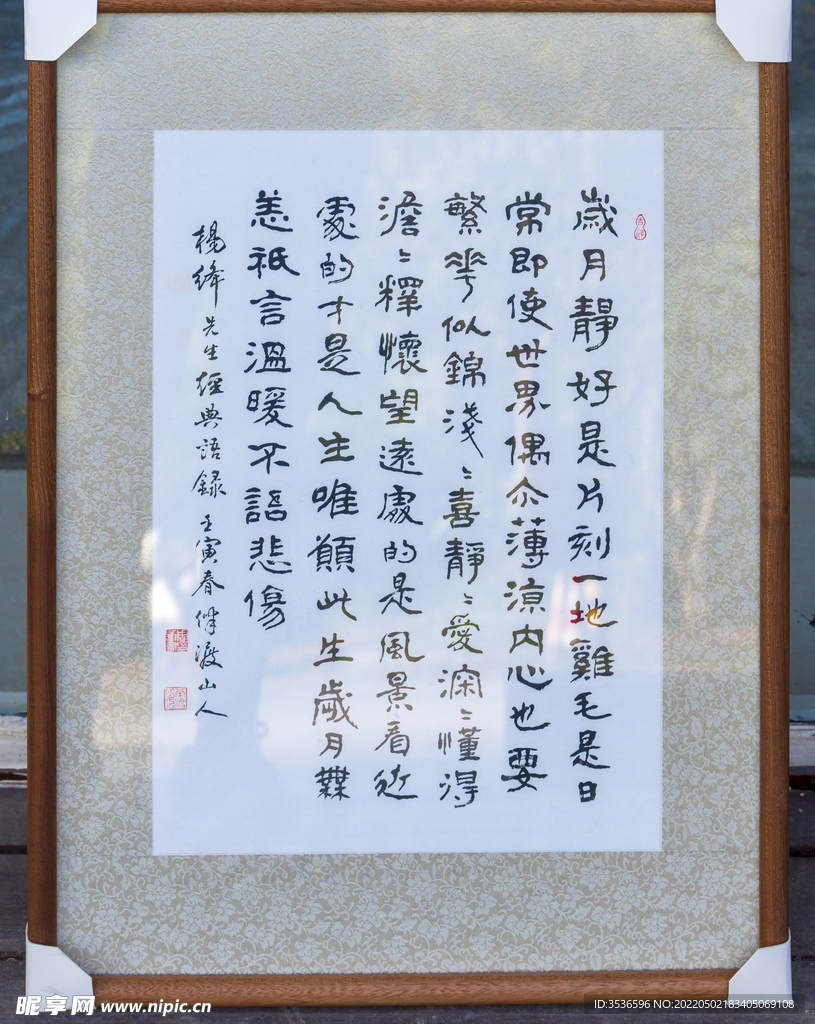 歲月靜好是片刻一地雞毛是日
常即使世界偶尒薄涼内心也要
繁華似錦淺〻喜靜〻愛深〻懂得
澹〻釋懷望遠處的是風景看近
處的才是人生唯願此生歲月無
恙祇言溫暖不語悲傷
楊絳先生經典語錄 壬寅春渡山人
昵享网 www.nipic.cn
ID:3536596 NO:20220502183405069108